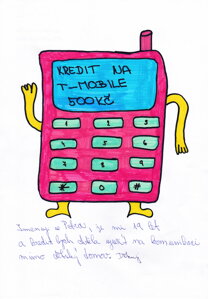 KREDIT NA
T-MOBILE
500KČ
1 2 3
4 5 6
7 8 9
* 0 #
Jmenuji se Petra, je mi 19 let
a kredit bych chtěla na komunikaci
mimo domov. Děkuji